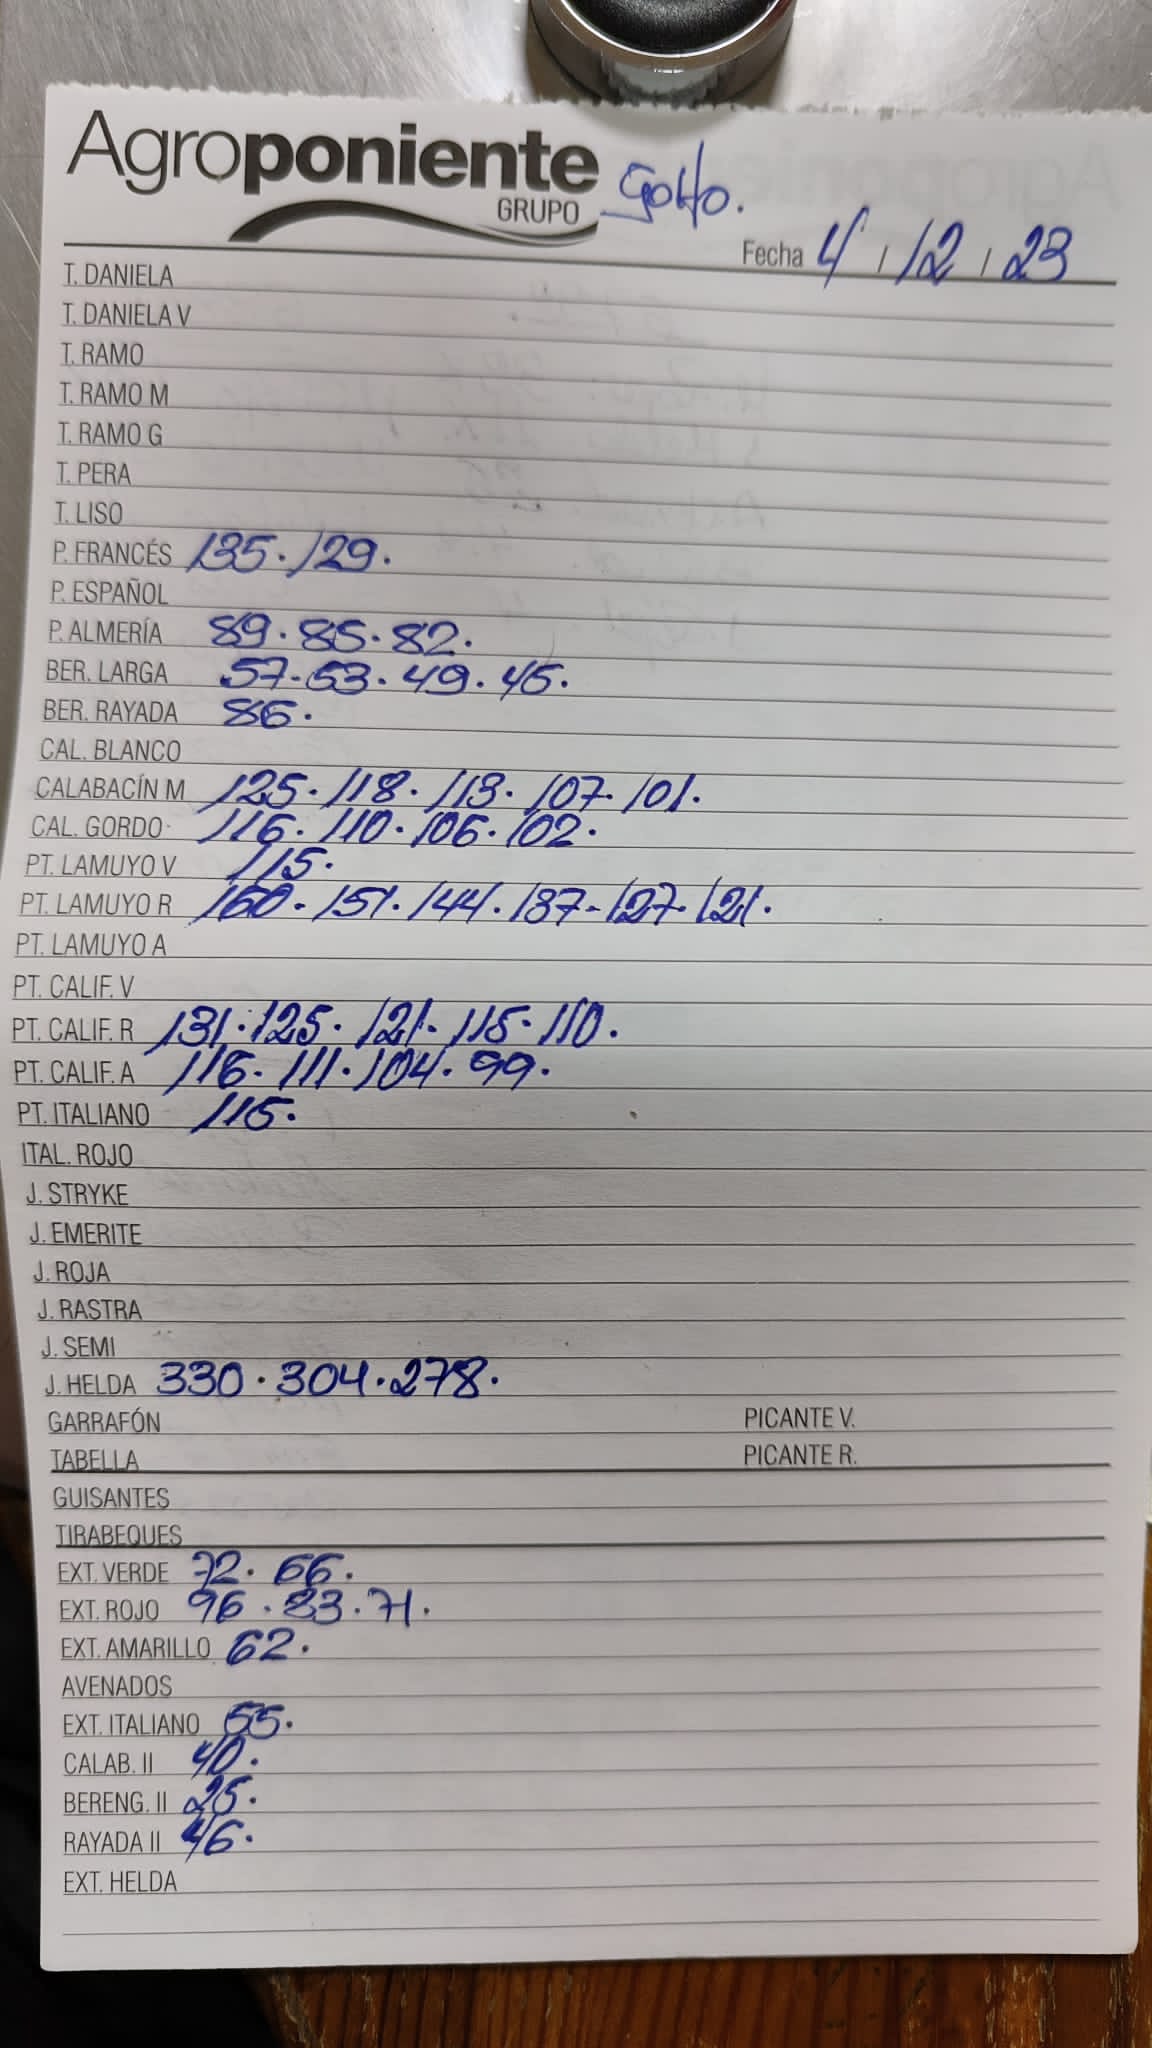 Agroponiente
GRUPO
Golfo.
Fecha 4 / 12 / 23
T. DANIELA
T. DANIELA V
T. RAMO
T. RAMO M
T. RAMO G
T. PERA
T. LISO
P. FRANCÉS 135. 129.
P. ESPAÑOL
P. ALMERÍA 89. 85. 82.
BER. LARGA 57. 53. 49. 45.
BER. RAYADA 86.
CAL. BLANCO
CALABACÍN M 125. 118. 113. 107. 101.
CAL. GORDO 116. 110. 106. 102.
PT. LAMUYO V 115.
PT. LAMUYO R 160. 151. 144. 137- 127. 121.
PT. LAMUYO A
PT. CALIF. V
PT. CALIF. R 131. 125. 121. 115. 110.
PT. CALIF. A 116. 111. 104. 99.
PT. ITALIANO 115.
ITAL. ROJO
J. STRYKE
J. EMERITE
J. ROJA
J. RASTRA
J. SEMI
J. HELDA 330. 304. 278.
GARRAFÓN PICANTE V.
TABELLA PICANTE R.
GUISANTES
TIRABEQUES
EXT. VERDE 72. 66.
EXT. ROJO 96. 83. 71.
EXT. AMARILLO 62.
AVENADOS
EXT. ITALIANO 55.
CALAB. II 40.
BERENG. II 25.
RAYADA II 46.
EXT. HELDA